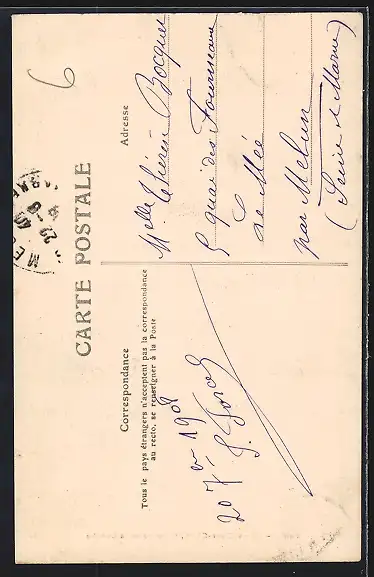 6
CARTE POSTALE
Correspondance
Tous le pays étrangers n'acceptent pas la correspondance
au recto, se renseigner à la Poste
20 7 1908
Adresse
Melle Bocquet
5 quai des Fourneaux
Le Mée
par Melun
(Seine et Marne)